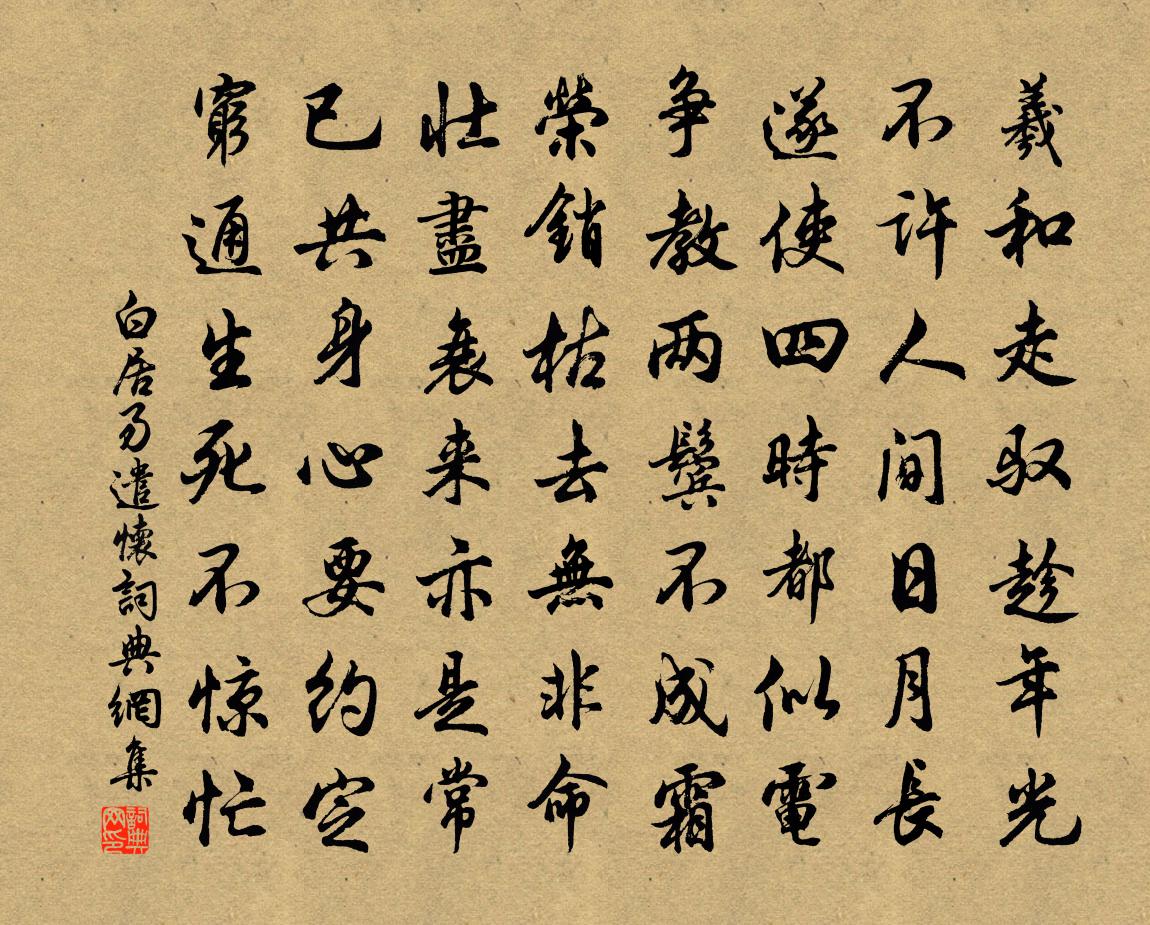 羲和走驭趁年光
不許人間日月長
遂使四時都似電
争教两鬢不成霜
榮銷枯去無非命
壮盡衰来亦是常
已共身心要約定
窮通生死不惊忙
白居易遣懷詞典網集
詞典网印